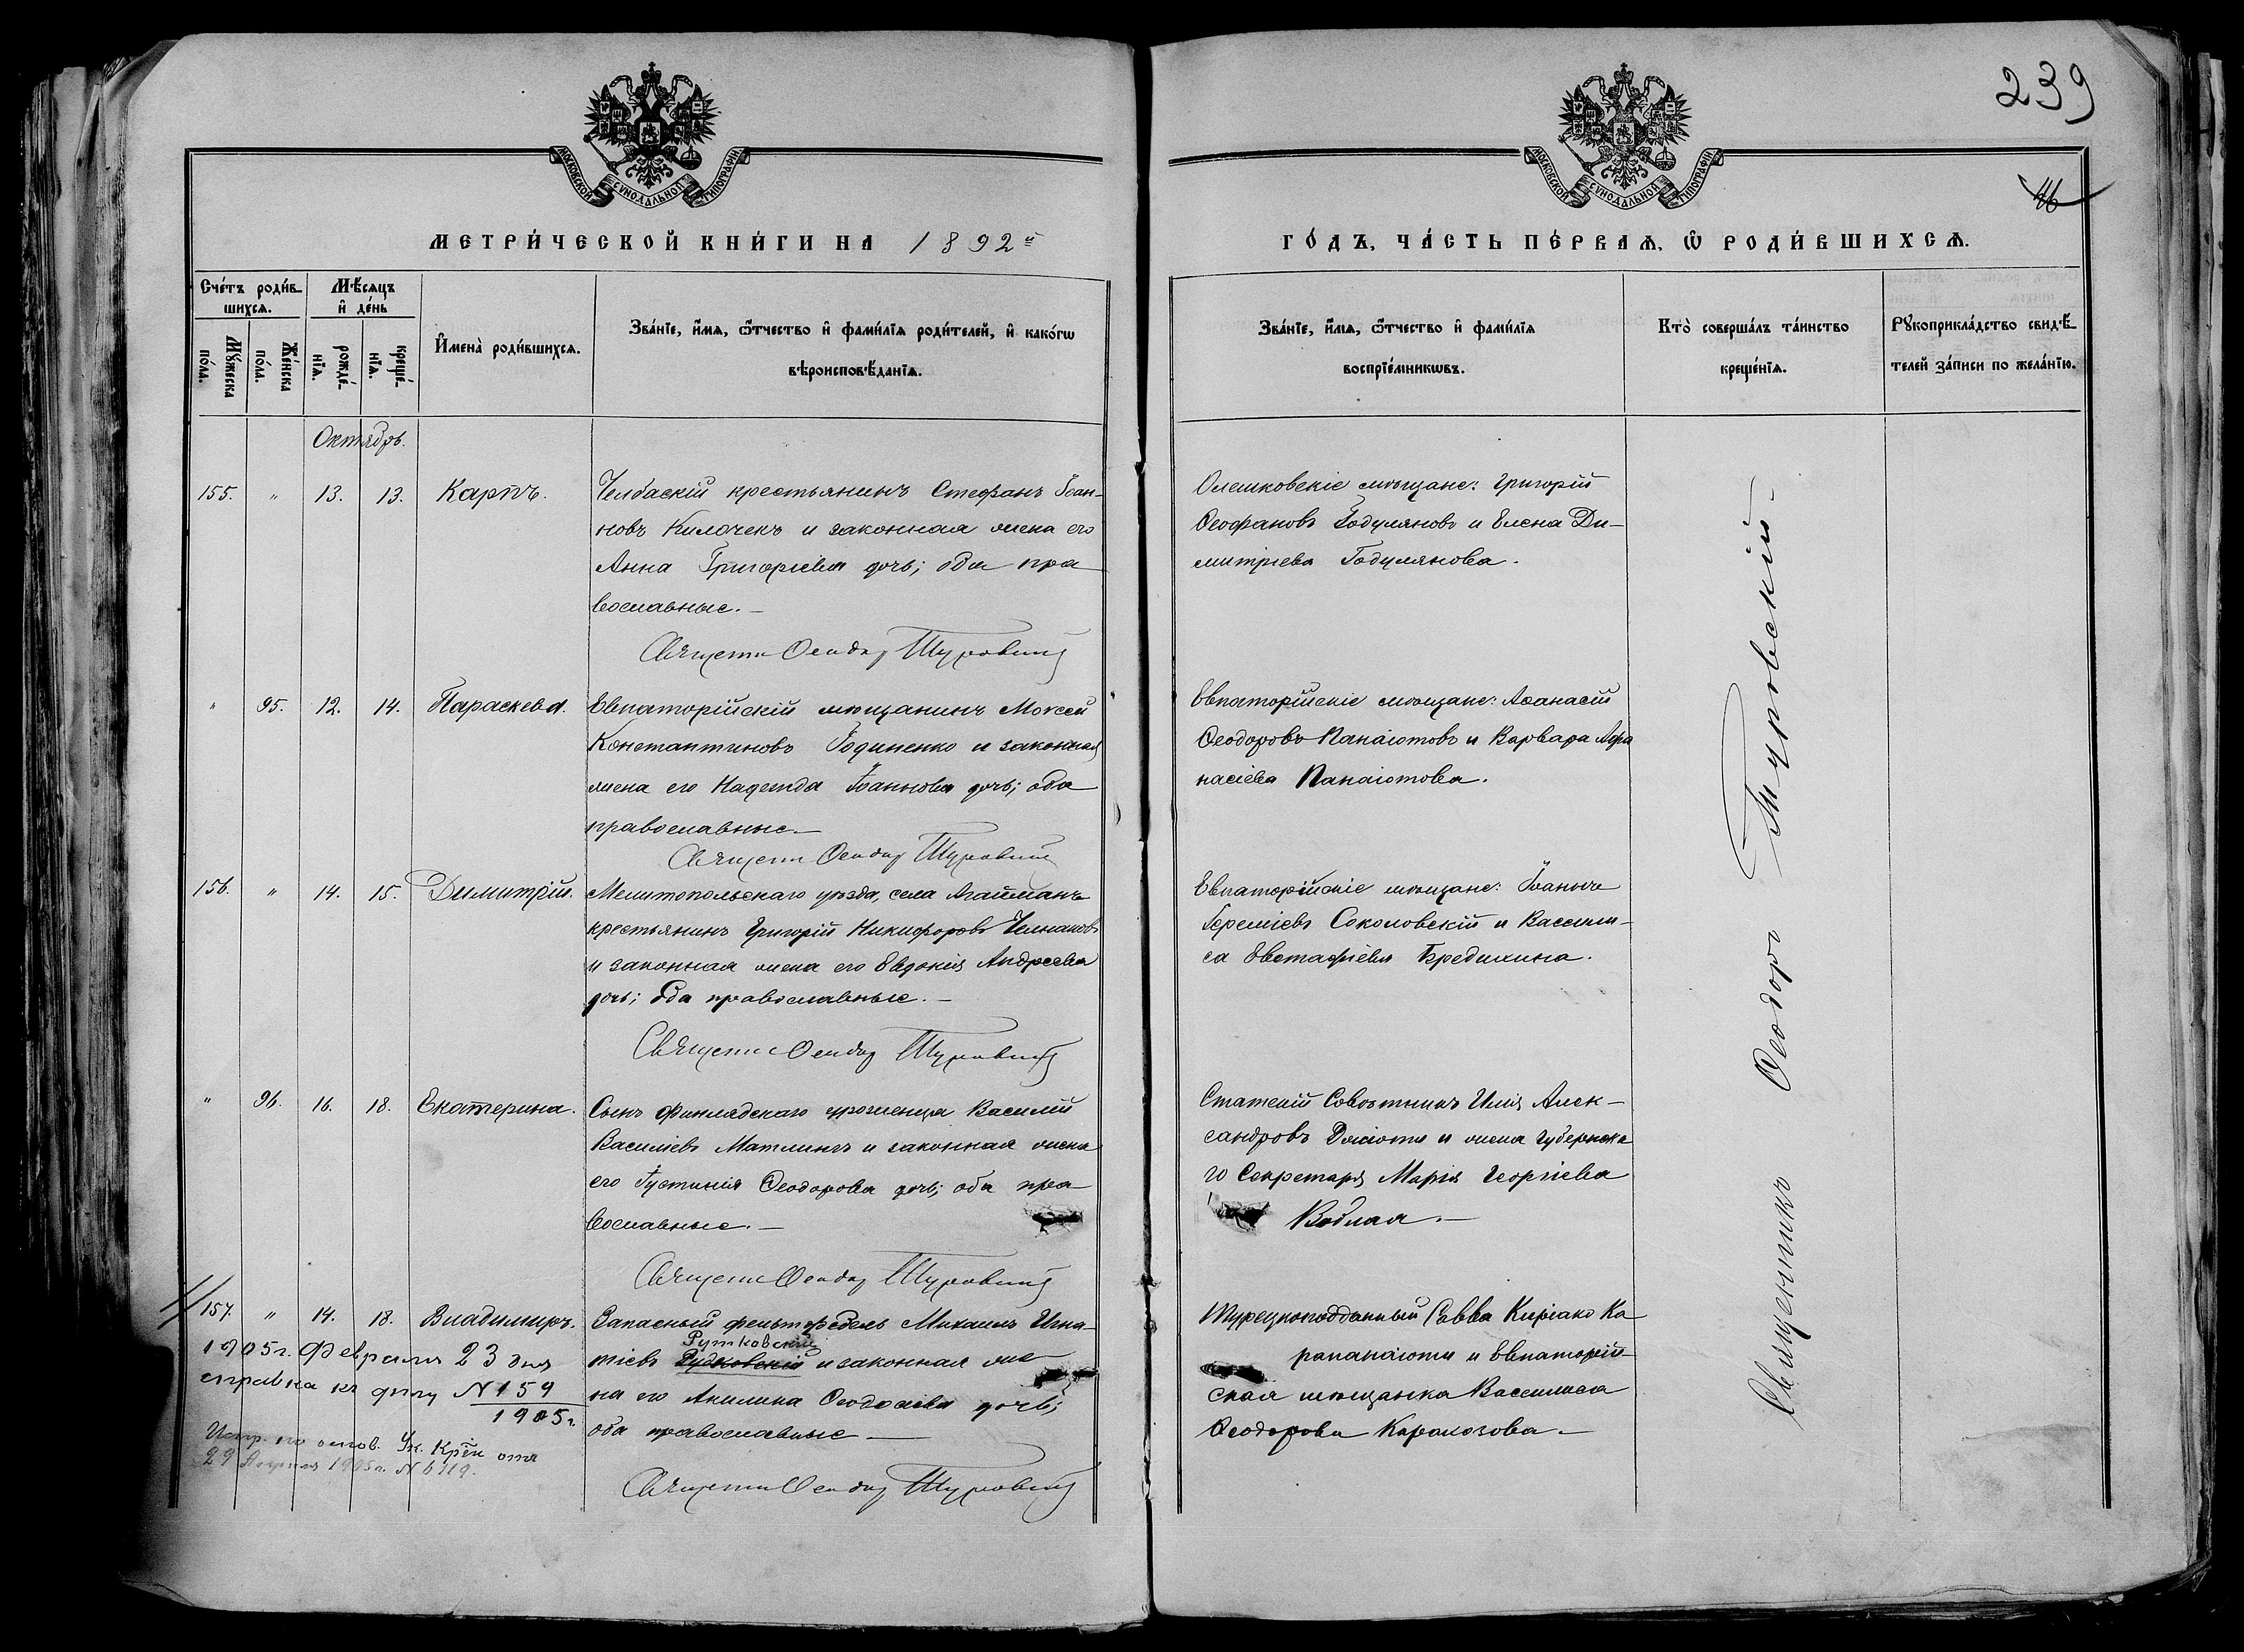 239
46
МОСКОВСКОЙ СѴНОДАЛЬНОЙ ТИПОГРАФІИ
МОСКОВСКОЙ СѴНОДАЛЬНОЙ ТИПОГРАФІИ
МЕТРИ́ЧЕСКОЙ КНИ́ГИ НА 1892й
ГО́ДЪ, ЧА́СТЬ ПЕ́РВАѦ, Ѡ҆ РОДИ́ВШИХСѦ.
Сче́тъ роди́вшихсѧ.
Мѣ́сѧцъ и҆ де́нь
Мꙋ́жеска по́ла.
Же́нска по́ла.
рожде́нїѧ.
креще́нїѧ.
И҆мена̀ роди́вшихсѧ.
Зва́нїе, и҆́мѧ, ѻ҆́тчество и҆ фами́лїѧ роди́телей, и҆ како́гѡ
вѣроисповѣ́данїѧ.
Зва́нїе, и҆́мѧ, ѻ҆́тчество и҆ фами́лїѧ
воспрїе́мникѡвъ.
Кто̀ соверша́лъ та́инство
креще́нїѧ.
Рꙋкоприкла́дство свидѣ́-
телей за́писи по жела́нїю.
Октябрь.
155. " 13. 13. Карпъ.
Челбаскій крестьянинъ Стефанъ Іоан-
новъ Килочекъ и законная жена его
Анна Григоріева дочь; оба пра
вославные.
Священн Ѳеодор Туровский
Олешковскіе мѣщане: Григорій
Ѳеофановъ Годуляновъ и Елена Ди-
митріева Годулянова.
" 95. 12. 14. Параскева.
Евпаторійскій мѣщанинъ Моисей
Константиновъ Годиненко и законная
жена его Надежда Іоаннова дочь; оба
православные.
Священн Ѳеодор Туровский
Евпаторійскіе мѣщане: Аѳанасій
Ѳеодоровъ Панаіотовъ и Варвара Аѳа
насіева Панаіотова.
156. " 14. 15. Димитрій.
Мелитопольскаго уѣзда, села Агайманъ
крестьянинъ Григорій Никифоровъ
и законная жена его Евдокія Андреева
дочь; оба православные.
Священн Ѳеодор Туровский
Евпаторійскіе мѣщане: Іоаннъ
Іереміевъ Соколовскій и Васили-
са Евстафіева Бредихина.
" 96. 16. 18. Екатерина.
Сынъ финлядскаго уроженца Василій
Василіевъ Матлинъ и законная жена
его Іустинія Ѳеодорова дочь; оба пра-
вославные.
Священн Ѳеодор Туровский
Статскій Совѣтникъ Илія Алек-
сандровъ и жена Губернска
го Секретаря Марія Георгіева
Водная.
157. " 14. 18. Владимиръ.
Запасный фельтфебель Михаилъ Игна-
Рутковскій
тіевъ Рудковскій и законная же
на его Акилина Ѳеодосіева дочь;
оба православные
Священн Ѳеодор Туровский
Турецкоподданный Савва Киріако Ка
рапанаіоти и Евпаторій
ская мѣщанка Василиса
Ѳеодорова Каракозова.
1905 г. Февраля 23 дня
справка къ дѣлу N 159
1905 г.
Испр. по основ. Ук. от
29 Апреля 1905 г. N 6719.
Священникъ Ѳеодоръ Туровский